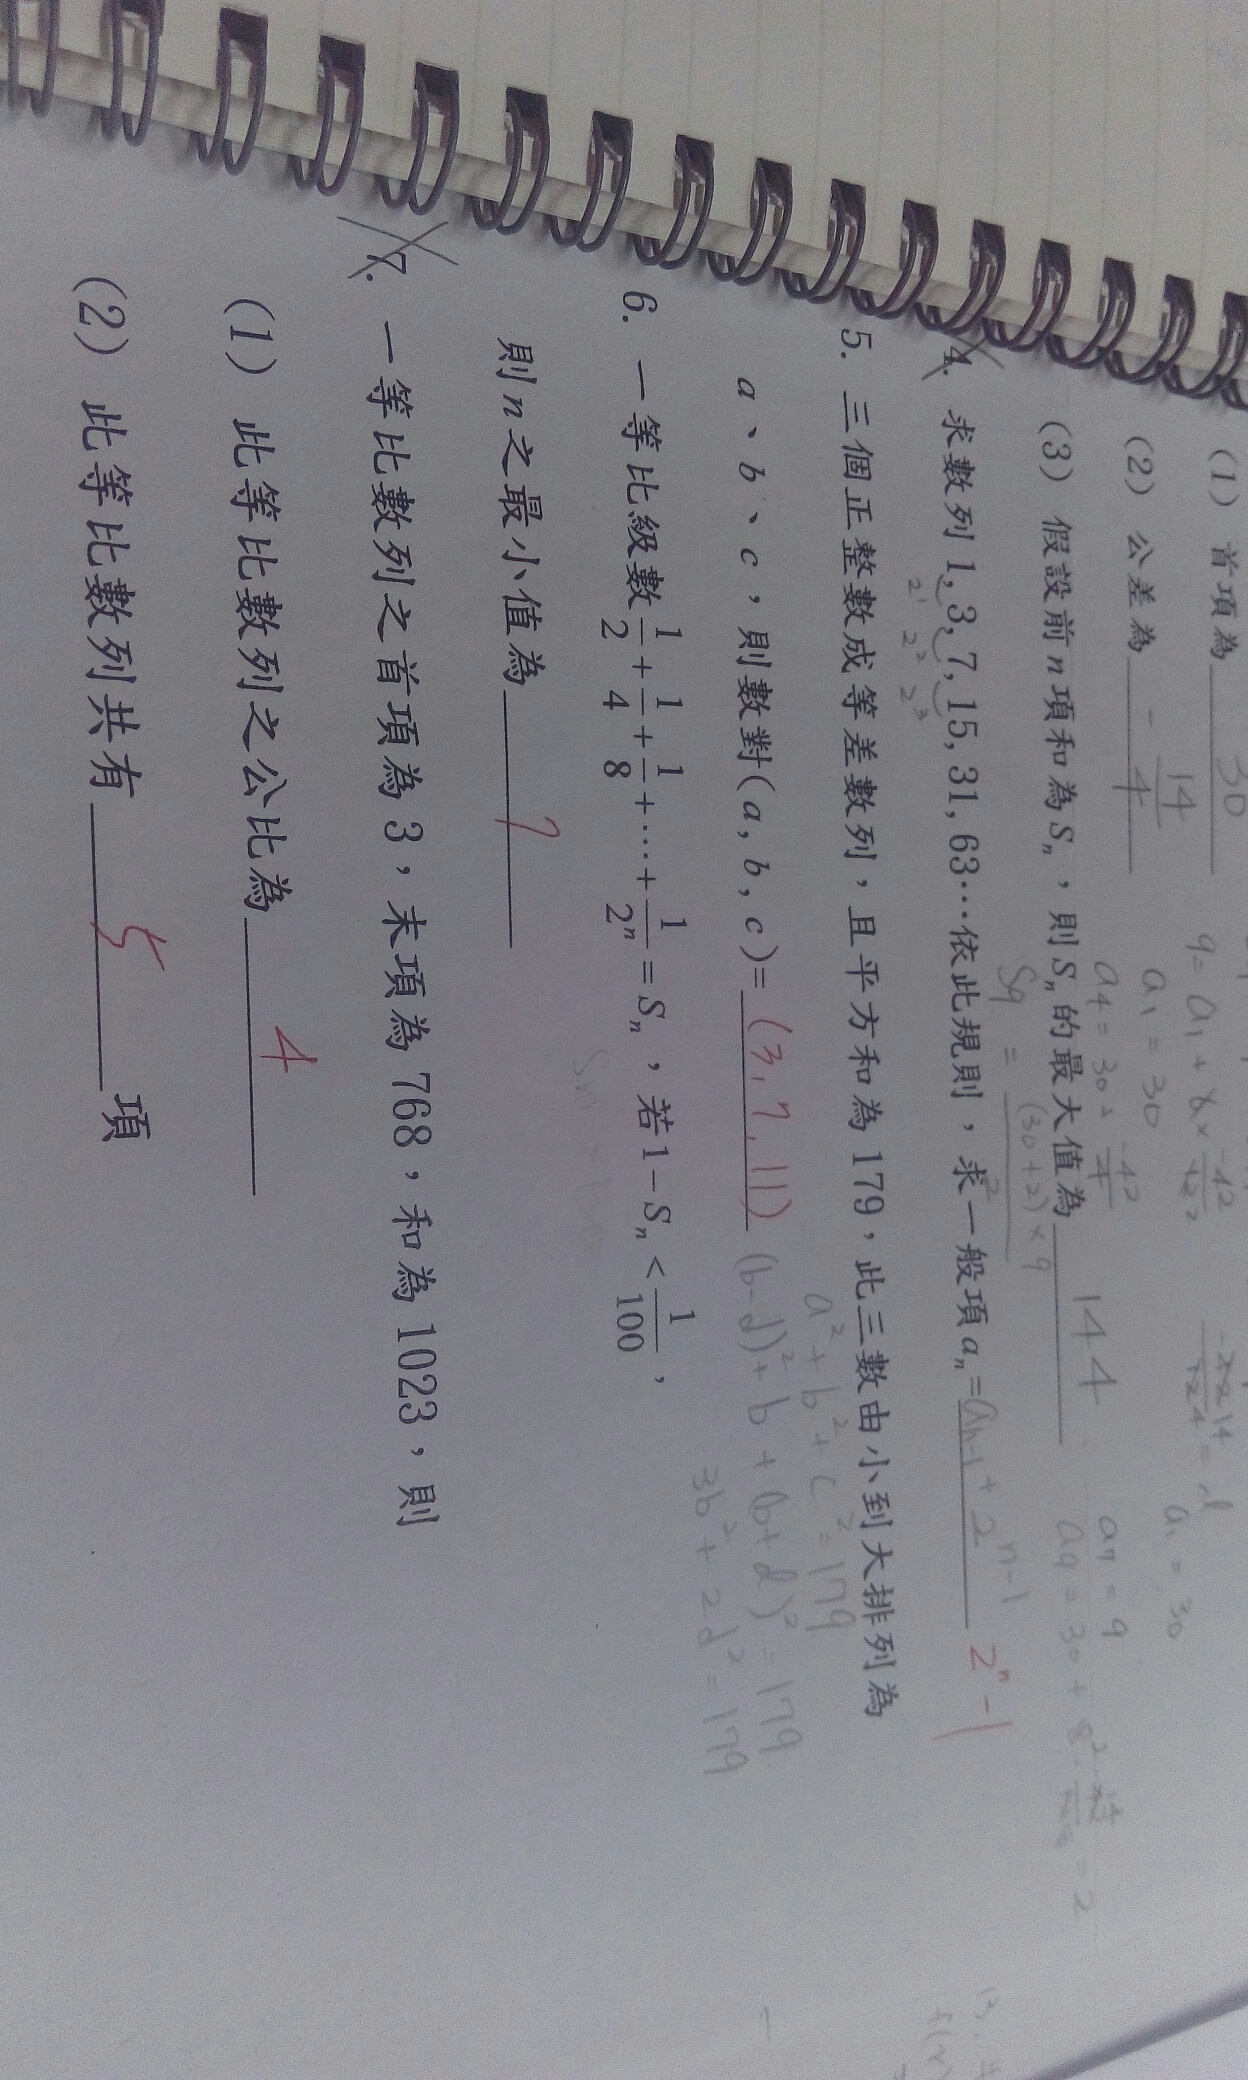 (1) 首項為 30
9 = a₁ + 8 ×
a₁ = 30
(2) 公差為 - 14/4
a₁ = 30
a₄ = 30 + -42/4
a₉ = 9
(3) 假設前n項和為Sₙ，則Sₙ的最大值為 144
a₉ = 30 + 8
S₉ = (30+2)×9/2
4. 求數列1, 3, 7, 15, 31, 63…依此規則，求一般項aₙ= aₙ₋₁ + 2ⁿ⁻¹ 2ⁿ-1
2¹ 2² 2³
5. 三個正整數成等差數列，且平方和為179，此三數由小到大排列為
a² + b² + c² = 179
a、b、c，則數對(a, b, c)= (3, 7, 11) (b-d)² + b + (b+d)² = 179
3b² + 2d² = 179
6. 一等比級數 1/2 + 1/4 + 1/8 + … + 1/2ⁿ = Sₙ，若1-Sₙ < 1/100，
則n之最小值為 7
7. 一等比數列之首項為3，末項為768，和為1023，則
(1) 此等比數列之公比為 4
(2) 此等比數列共有 5 項